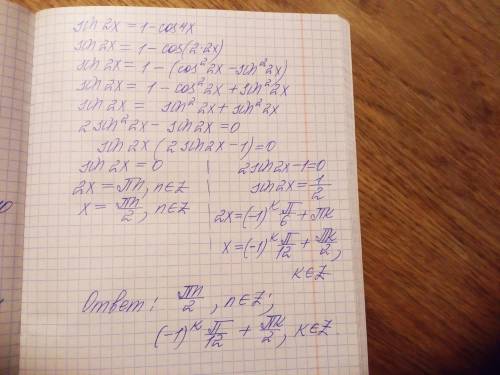 sin 2x = 1 - cos 4x
sin 2x = 1 - cos(2·2x)
sin 2x = 1 - (cos² 2x - sin² 2x)
sin 2x = 1 - cos² 2x + sin² 2x
sin 2x = sin² 2x + sin² 2x
2 sin² 2x - sin 2x = 0
sin 2x (2 sin 2x - 1) = 0
sin 2x = 0 | 2 sin 2x - 1 = 0
2x = πn, n∈Z | sin 2x = 1/2
x = πn/2, n∈Z | 2x = (-1)^k π/6 + πk
x = (-1)^k π/12 + πk/2,
k∈Z
Ответ: πn/2, n∈Z;
(-1)^k π/12 + πk/2, k∈Z.